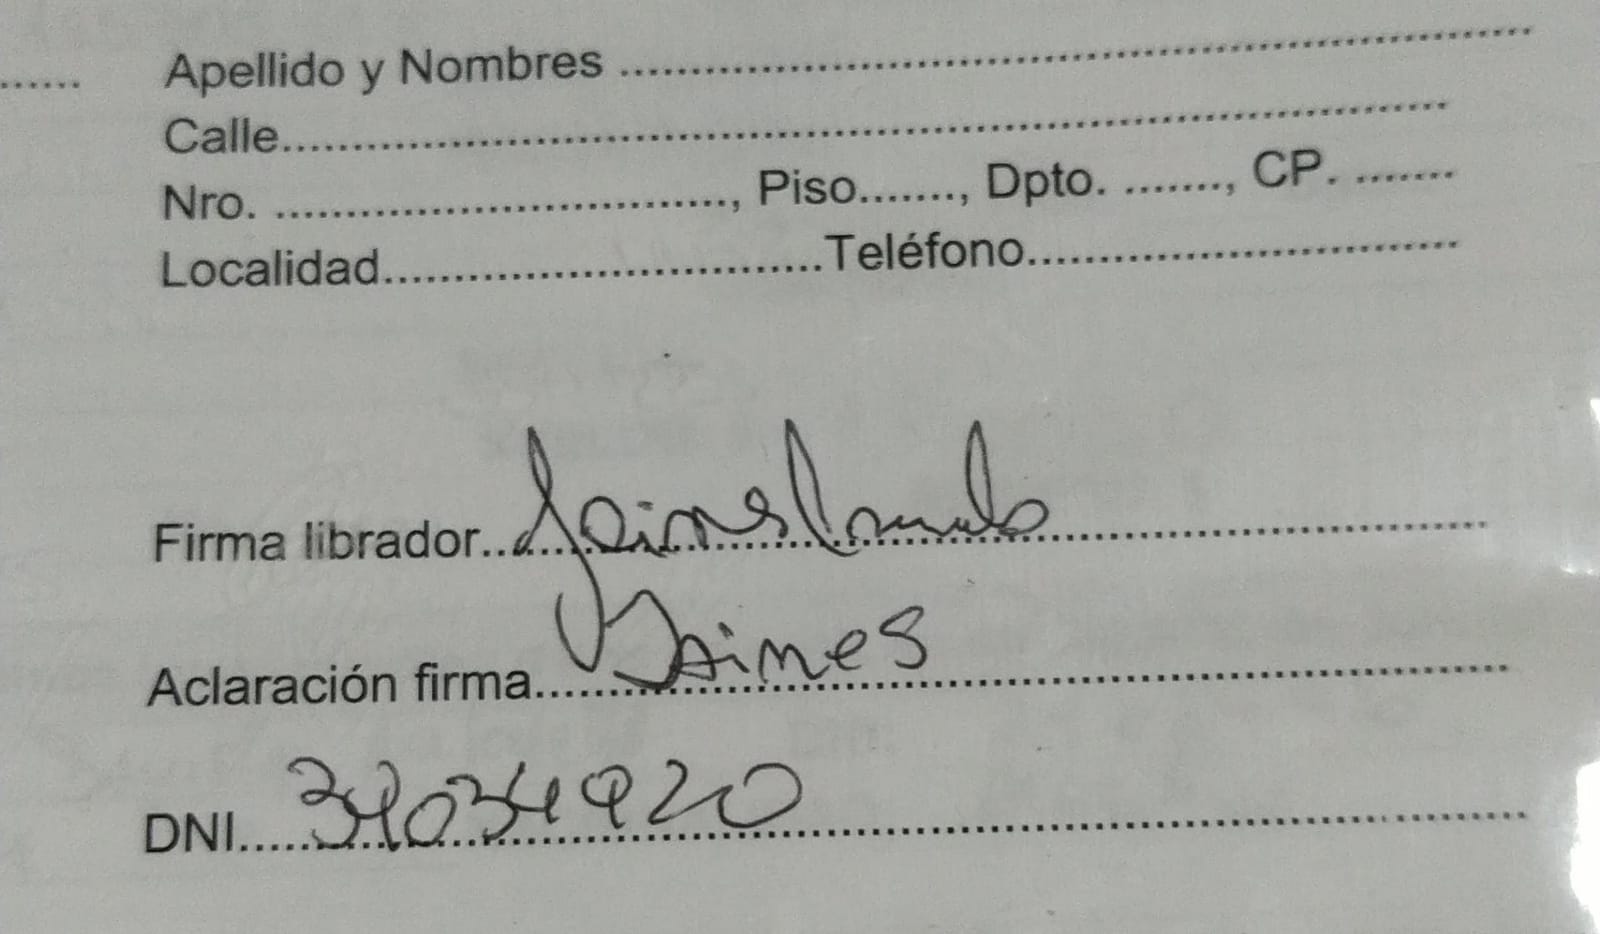 Apellido y Nombres ........................................................
Calle........................................................................
Nro. ................................, Piso......., Dpto. ......., CP. .......
Localidad..............................Teléfono..............................
Firma librador........................................
Aclaración firma.... Jaimes ........................................
DNI.... 34034920 ........................................